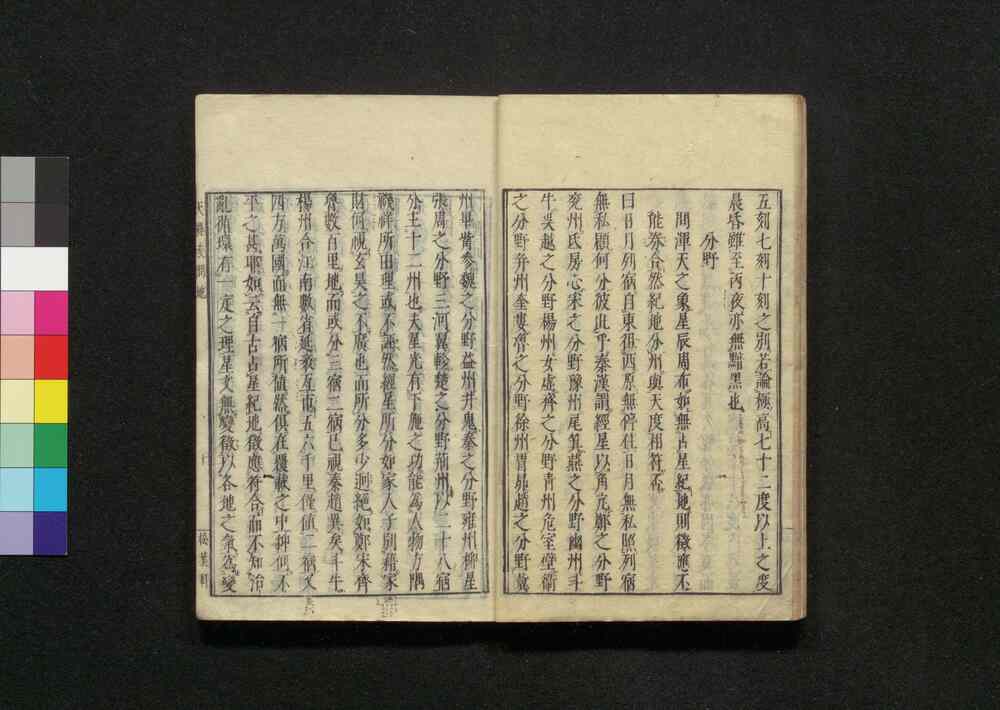 五刻七刻十刻之別若論極高七十二度以上之度
晨昏雖至丙夜亦無黯黑也
分野
問渾天之象星辰周布如無占星紀地則徵應不
能夯合然紀地分州與天度相符否
曰日月列宿自東徂西原無停住日月無私照列宿
無私顧何分彼此乎秦漢謂經星以角亢鄭之分野
兗州氐房心宋之分野豫州尾箕燕之分野幽州斗
牛吳越之分野楊州女虛齊之分野青州危室壁衛
之分野并州奎婁魯之分野徐州胃昴趙之分野冀
州畢觜參魏之分野益州井鬼秦之分野雍州柳星
張周之分野三河翼軫楚之分野荊州以二十八宿
分主十二州也夫星光有下施之功能為人物方隅
禨祥所由理或不誣然經星所分如家人子別藉家
財何視玄昊之不廣也而所分多少迥絕如鄭宋齊
魯數百里地而或分三宿二宿已視秦趙異矣斗牛
楊州合江南數省延袤左甫五六千里僅值二宿又
四方萬國而無一宿所值然俱在覆載之中抑何不
平之甚耶如云自古占星紀地徵應符合而不知治
亂循環有一定之理星文無變徵以各地之氣為變